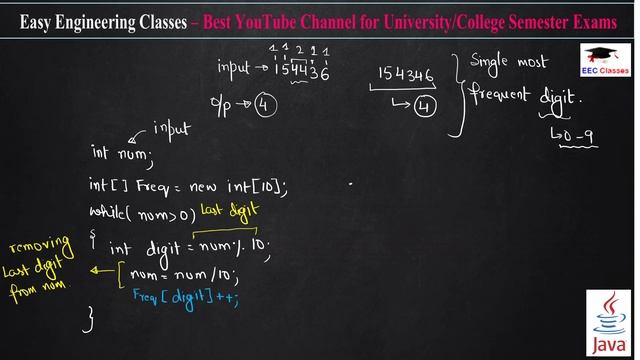 Easy Engineering Classes – Best YouTube Channel for University/College Semester Exams
EEC Classes
1 1 2 1 1
input → 154436
o/p → 4
154346
↳ 4
Single most
frequent digit.
↳ 0-9
input
int num;
int[] Freq = new int[10];
while(num>0)
Last digit
{
int digit = num % 10;
num = num /10;
Freq[digit]++;
}
removing
Last digit
from num.
Java